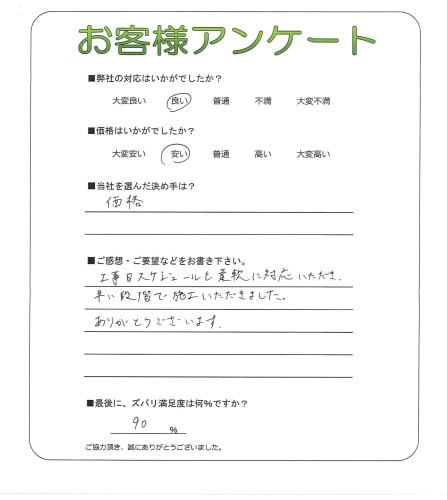 お客様アンケート
■弊社の対応はいかがでしたか？
大変良い 良い 普通 不満 大変不満
■価格はいかがでしたか？
大変安い 安い 普通 高い 大変高い
■当社を選んだ決め手は？
価格
■ご感想・ご要望などをお書き下さい。
工事日スケジュールも柔軟に対応いただき、
早い段階で施工いただきました。
ありがとうございます。
■最後に、ズバリ満足度は何％ですか？
90 %
ご協力頂き、誠にありがとうございました。